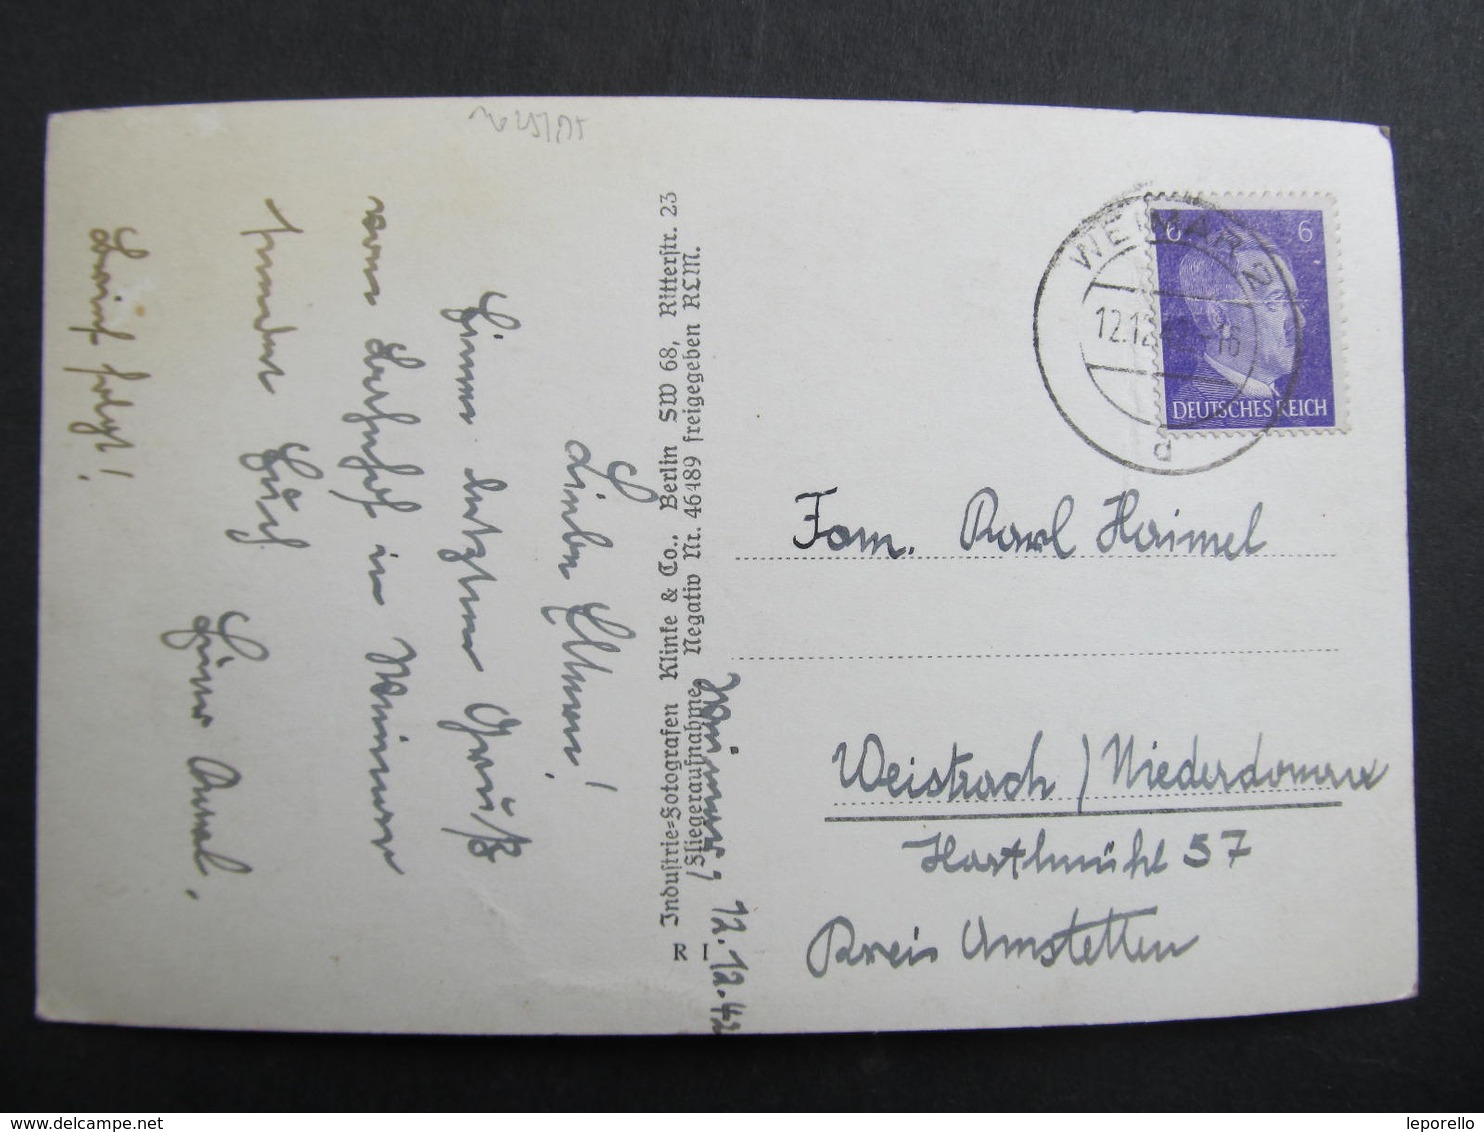 Weimar, 12.12.42
Liebe Eltern!
Einen letzten Gruß
vom Bahnhof in Weimar
sendet Euch
Euer
Brief folgt!
Industrie-Fotografen Klinke & Co., Berlin SW 68, Ritterstr. 23
Fliegeraufnahme, Negativ Nr. 46489 freigegeben RLM.
R I
WEIMAR 2
12.12.42 -16
d
6 6
DEUTSCHES REICH
Fam. Karl Haimel
Weistrach / Niederdonau
Hartlmühl 57
Kreis Amstetten
www.delcampe.net
leporello